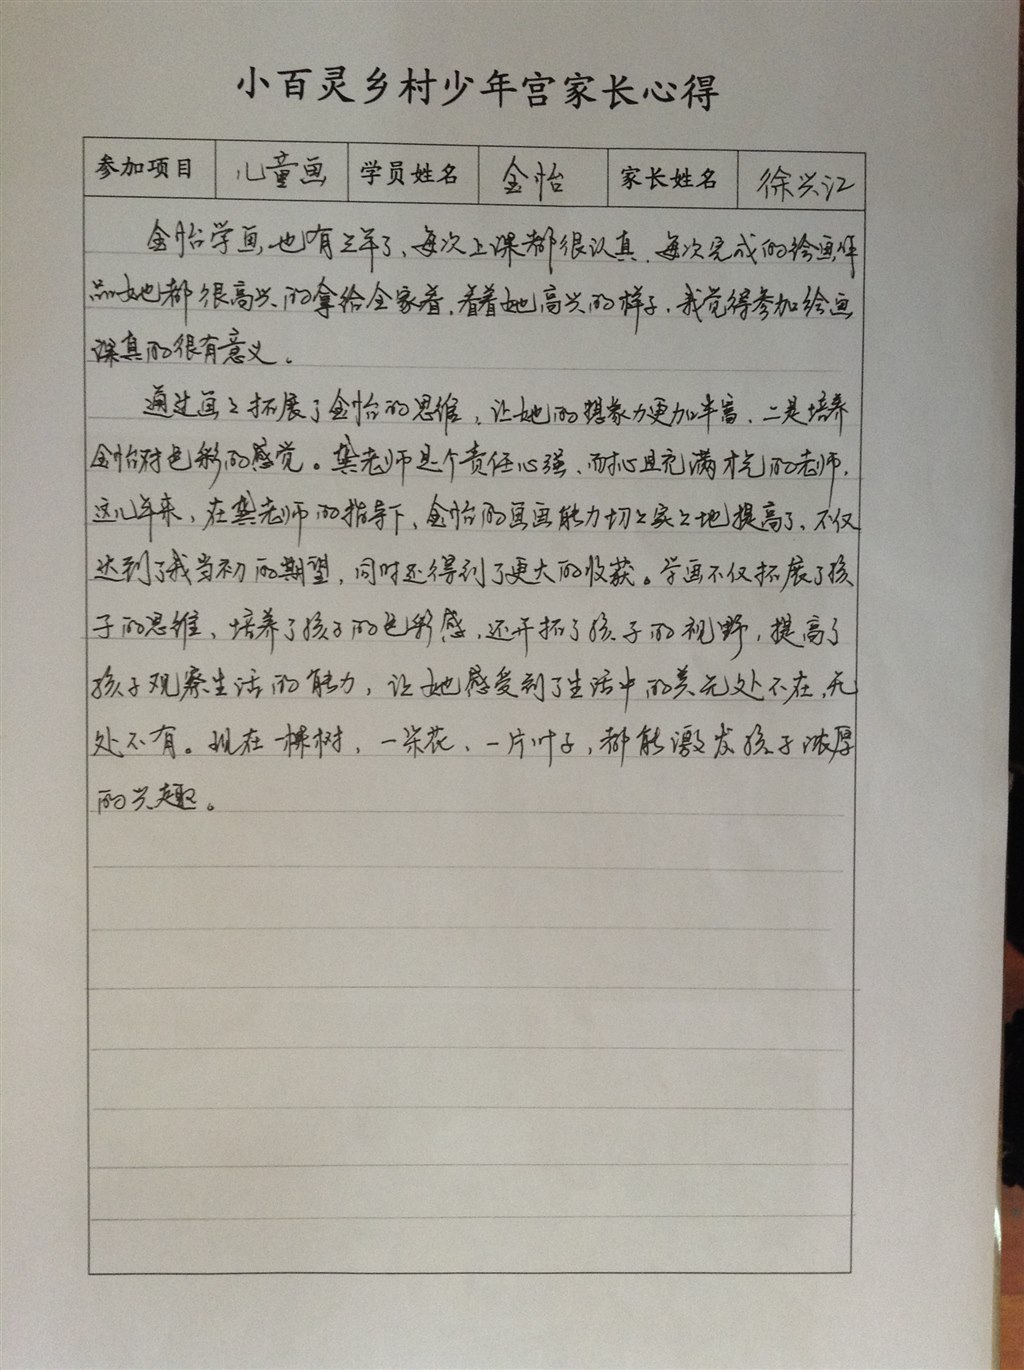 小百灵乡村少年宫家长心得
参加项目 儿童画 学员姓名 金怡 家长姓名 徐兴江
金怡学画也有三年了、每次上课都很认真、每次完成的绘画作
品她都很高兴的拿给全家看,看着她高兴的样子,我觉得参加绘画
课真的很有意义。
通过画画拓展了金怡的思维,让她的想象力更加丰富、二是培养
金怡对色彩的感觉。龚老师是个责任心强、耐心且充满才气的老师,
这几年来,在龚老师的指导下,金怡的画画能力切切实实地提高了、不仅
达到了我当初的期望,同时还得到了更大的收获。学画不仅拓展了孩
子的思维、培养了孩子的色彩感,还开拓了孩子的视野,提高了
孩子观察生活的能力,让她感受到了生活中的美无处不在,无
处不有。现在一棵树,一朵花、一片叶子,都能激发孩子浓厚
的兴趣。